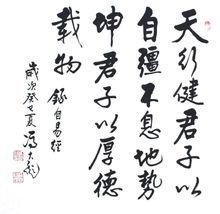 天行健君子以
自彊不息地勢
坤君子以厚德
載物 錄自易經
歲次癸巳夏馮大彪